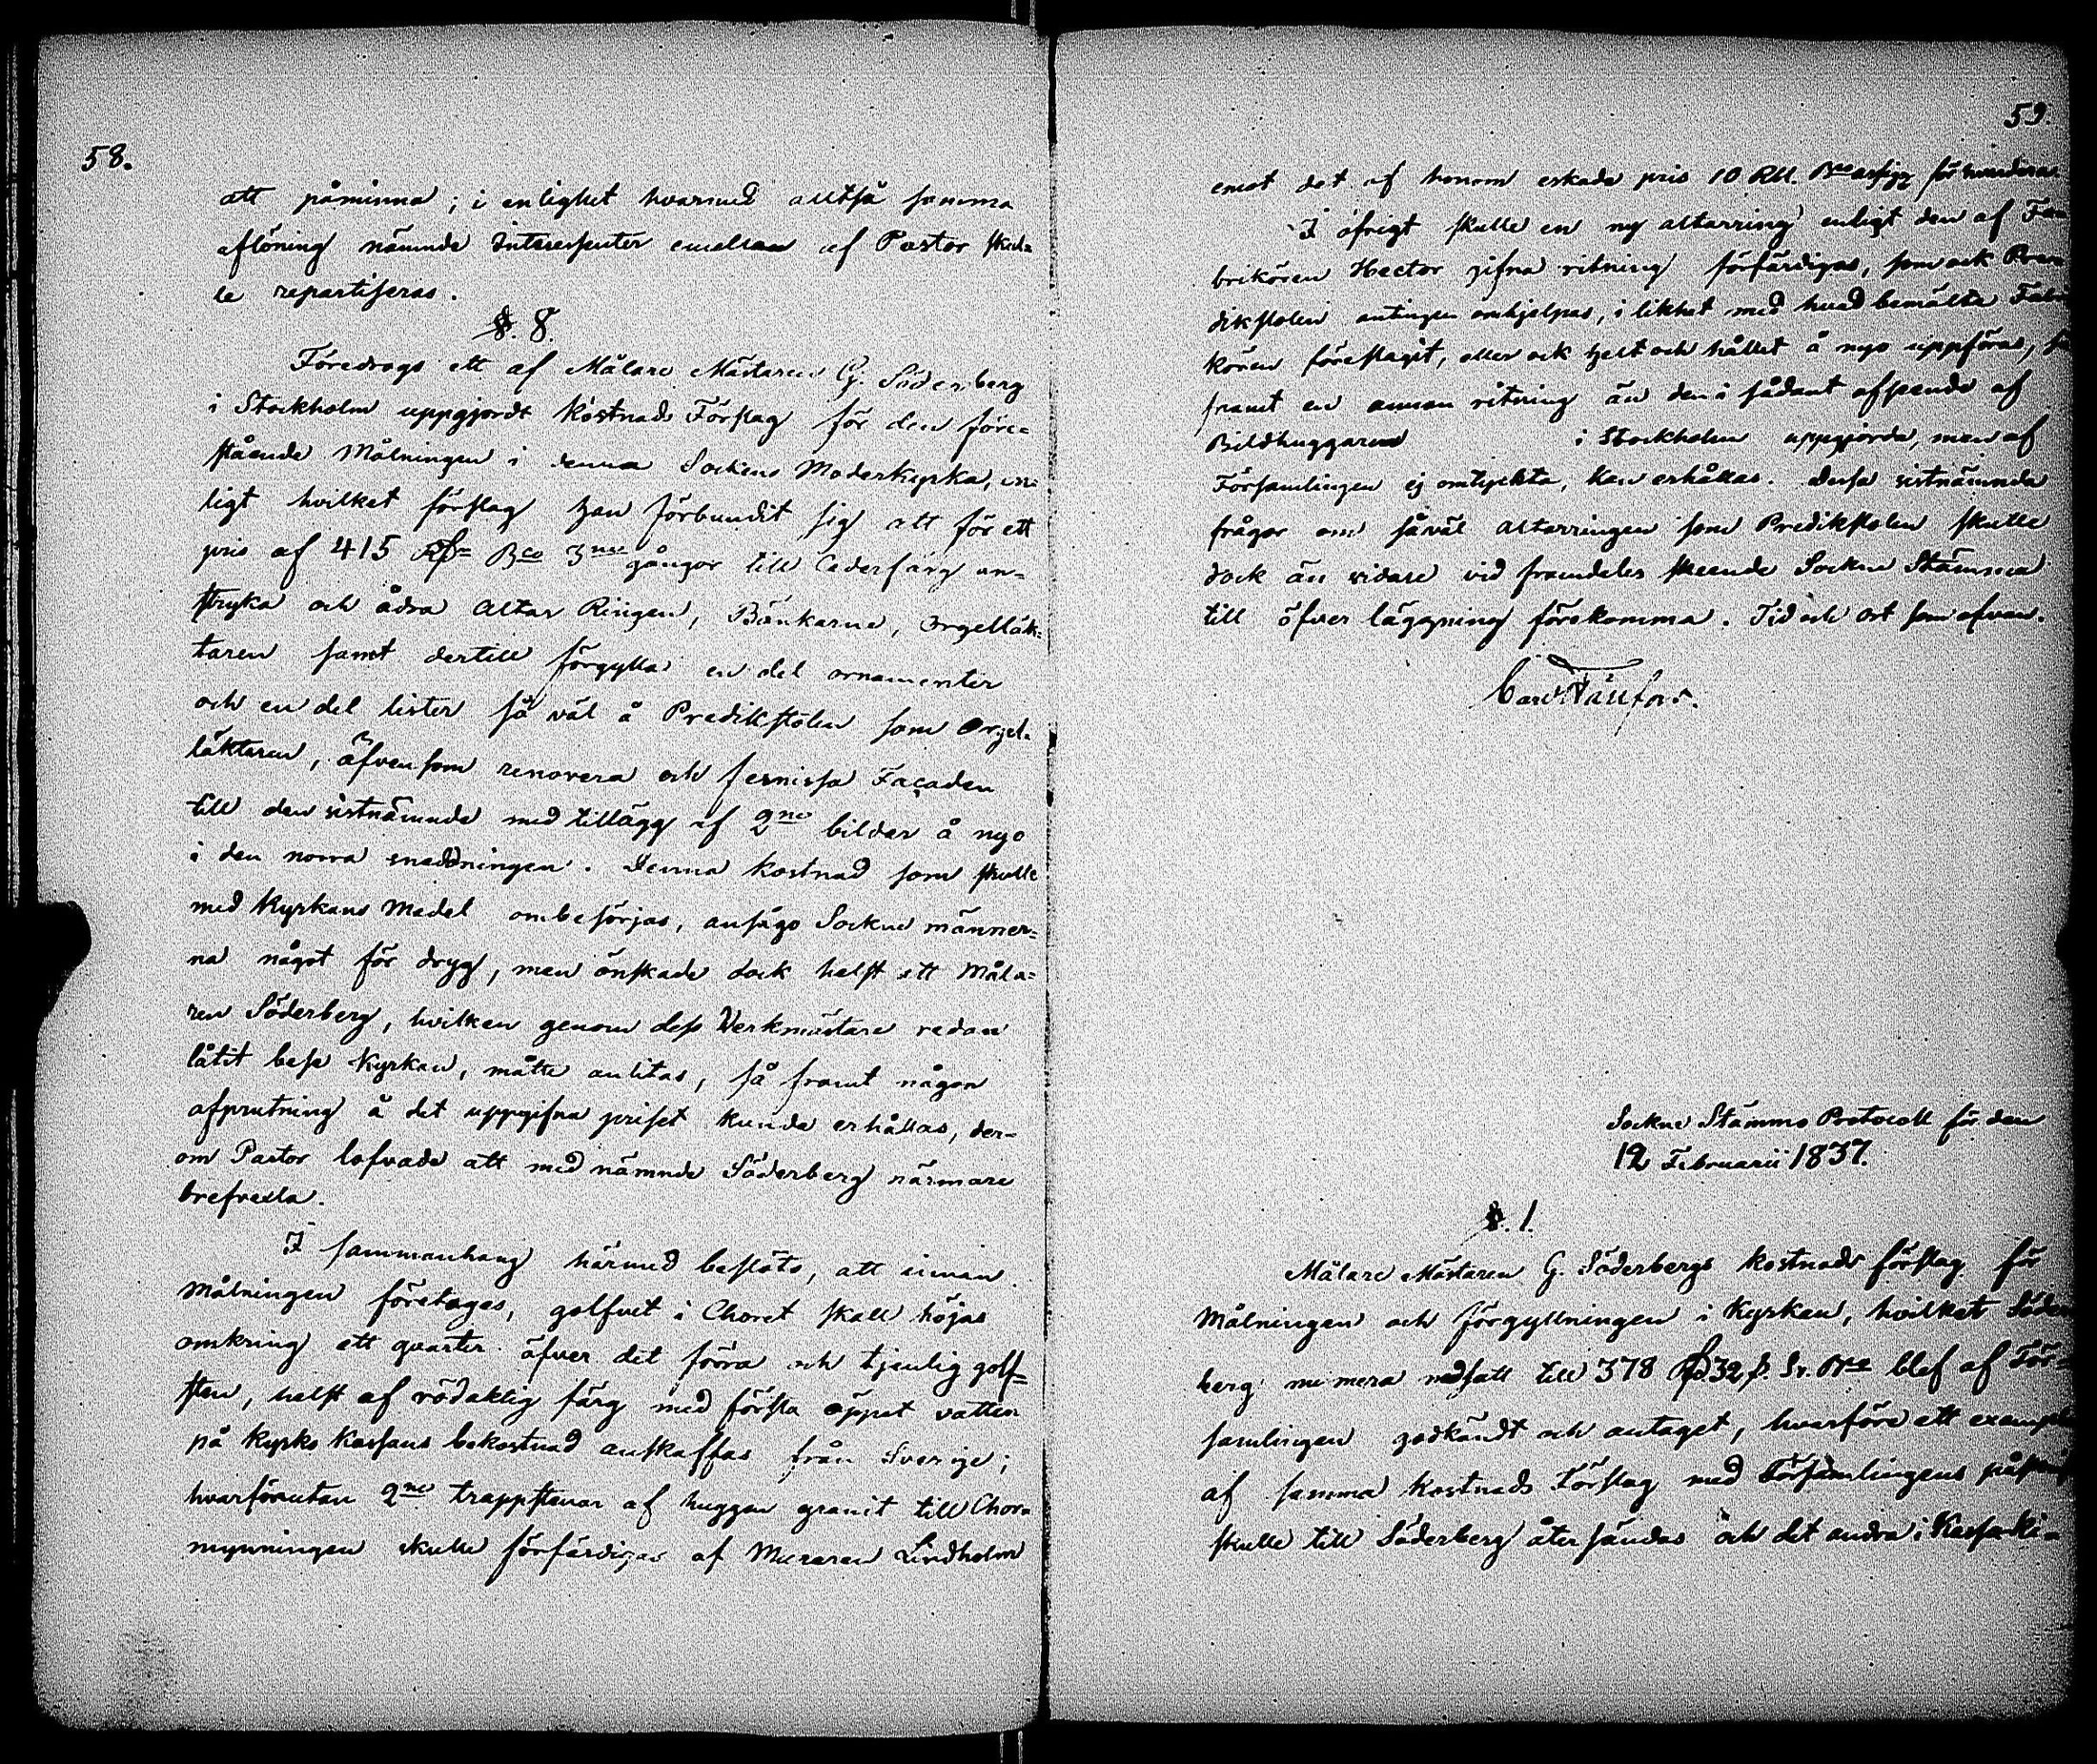 58.
att påminna; i enlighet hvarmed alltså samma
aflöning nämnde Interessenter emellan af Pastor skul=
le repartiseras.
§. 8.
Föredrogs ett af Målare Mästaren G. Söderberg
i Stockholm uppgjordt Kostnads Förslag för den före=
stående Målningen i denna Sockens Moderkyrka, en=
ligt hvilket förslag han förbundit sig att för ett
pris af 415 Rd Bco 3ne gångor till Cederfärg an=
stryka och ådra Altar Ringen, Bänkarne, Orgelläk=
taren samt dertill förgylla en del ornamenter
och en del lister så väl å Predikstolen som Orgel=
läktaren, äfvensom renovera och fernissa Façaden
till den sistnämnde med tillägg af 2ne bilder å nyo
i den norra inredningen. Denna kostnad som skulle
med Kyrkans Medel ombesörjas, ansågo Sockne männer=
na något för dryg, men önskade dock helst att Måla=
ren Söderberg, hvilken genom dess Verkmästare redan
låtit bese Kyrkan, måtte anlitas, så framt någon
afprutning å det uppgifna priset kunde erhållas, der=
om Pastor lofvade att med nämnde Söderberg närmare
brefvexla.
I sammanhang härmed beslöts, att innan
Målningen företages, golfvet i Choret skall höjas
omkring ett qvarter öfver det förra och tjenlig golf=
sten, helst af rödaktig färg med första öppet vatten
på Kyrko Kassans bekostnad anskaffas från Sverige;
hvarförutan 2ne trappstenar af huggen granit till Chor=
mynningen skulle förfärdigas af Muraren Lindholm
59.
emot det af honom eskade pris 10 Rbl. Bco assign för hvardera
I öfrigt skulle en ny altarring enligt den af Fa
brikören Hector gifna ritning förfärdigas, som ock Pre
dikstolen antingen omhjelpas, i likhet med hvad bemälte Fabri
kören föreslagit, eller ock helt och hållet å nyo uppföras, så
framt en annan ritning än den i sådant afseende af
Bildhuggaren i Stockholm uppgjorda, men af
Församlingen ej omtyckta, kan erhållas. Dessa sistnämnda
frågor om såväl Altarringen som Predikstolen skulle
dock än vidare vid framdeles skeende Sockne Stämma
till öfver läggning förekomma. Tid och ort som ofvan.
Sockne Stämmo Protocoll för den
12 Februarii 1837.
§. 1.
Målare Mästaren G. Söderbergs kostnads förslag för
Målningen och förgyllningen i Kyrkan, hvilket Söder
berg nu mera nedsatt till 378 Rd 32 s. Sv. Bco blef af För=
samlingen godkändt och antaget, hvarföre ett exemplar
af samma Kostnads Förslag med Församlingens påskrift
skulle till Söderberg åter sändas och det andra i Kassa Ki=